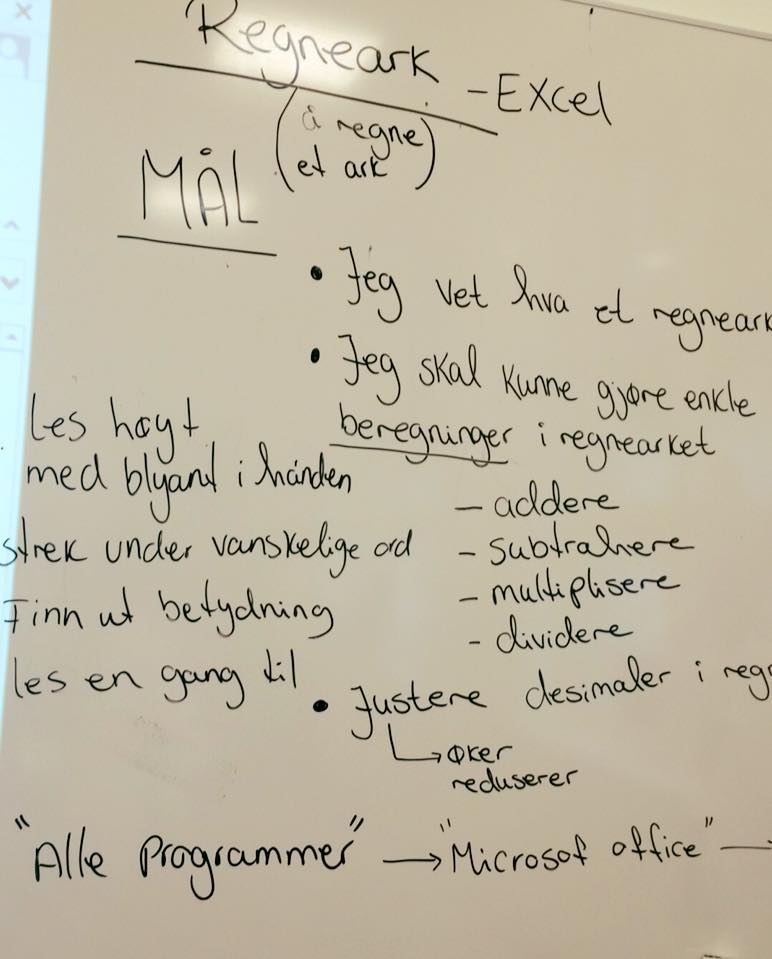 Regneark - Excel
(å regne
et ark)
MÅL
• Jeg vet hva et regneark
• Jeg skal kunne gjøre enkle
beregninger i regnearket
- addere
- subtrahere
- multiplisere
- dividere
Les høyt
med blyant i hånden
strek under vanskelige ord
Finn ut betydning
les en gang til
• Justere desimaler i reg
↳ øker
reduserer
"Alle Programmer" → "Microsof office" →